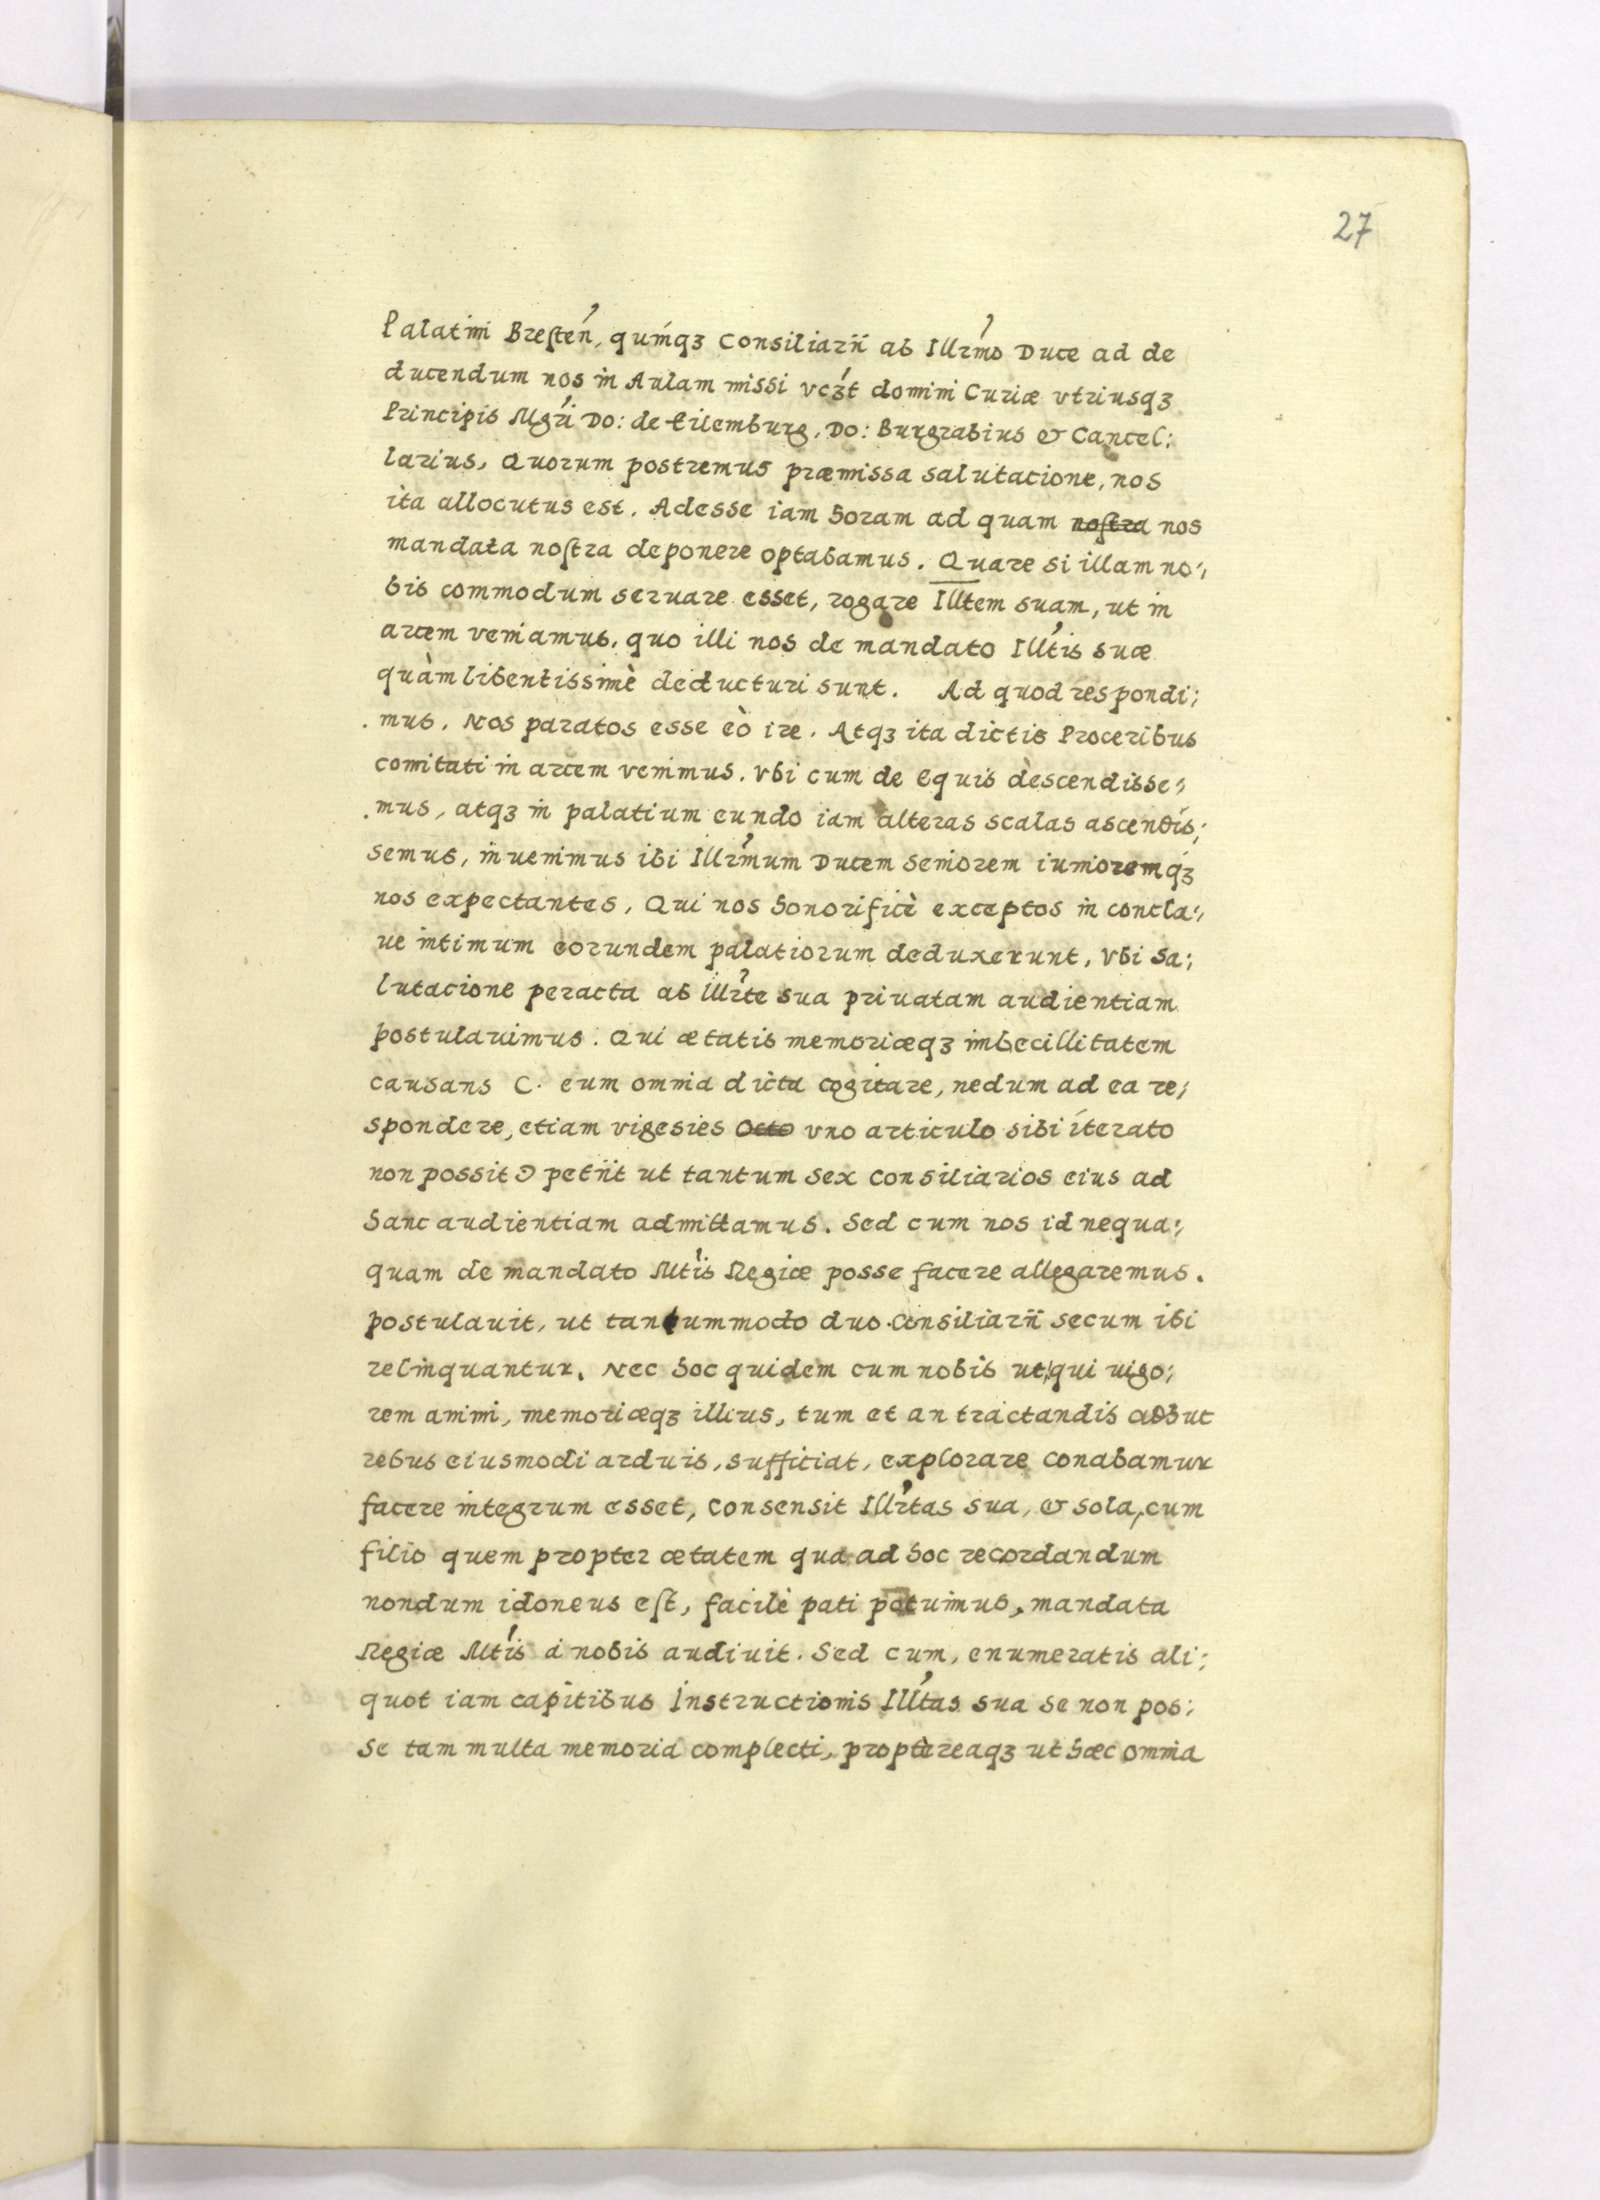 27
Palatini Bresten̕, quinqꝫ Consiliarii ab Illr̕mo Duce ad de
ducendum nos in Aulam missi vcꝫt domini Curiæ vtriusqꝫ
Principis Mgr̕i Do: de Eilemburg, Do: Burgrabius & Cancel:
larius, Quorum postremus præmissa salutacione, nos
ita allocutus est. Adesse iam horam ad quam nostra nos
mandata nostra deponere optabamus. Quare si illam no:,
bis commodum seruare esset, rogare Illtem suam, ut in
arcem veniamus, quo illi nos de mandato Illt̕is suæ
quàm libentissimè deducturi sunt. Ad quod respondi;
mus, Nos paratos esse eò ire. Atqꝫ ita dictis Proceribus
comitati in arcem venimus. Vbi cum de Equis descendisse:,
mus, atqꝫ in palatium eundo iam alteras scalas ascendis;
semus, inuenimus ibi Illr̕mum Ducem seniorem iunioremqꝫ
nos expectantes, Qui nos honorificè exceptos in concla:,
ue intimum eorundem palatiorum deduxerunt, Vbi sa;
lutacione peracta ab illr̕te sua priuatam audientiam
postulauimus: Qui ætatis memoriæqꝫ imbecillitatem
causans C. eum omnia dicta cogitare, nedum ad ea re;
spondere, etiam vigesies Octo vno articulo sibi iterato
non possit Ɔ petiit ut tantum sex Consiliarios eius ad
hanc audientiam admittamus. Sed cum nos id nequa:,
quam de mandato Mt̕is Regiæ posse facere allegaremus.
postulauit, ut tantummodo duo Consiliarii secum ibi
relinquantur. Nec hoc quidem cum nobis ut qui uigo;
rem animi, memoriæqꝫ illius, tum et an tractandis adhuc
rebus eiusmodi arduis, sufficiat, explorare conabamur
facere integrum esset, Consensit Illr̕tas sua, & sola, cum
filio quem propter ætatem qua ad hoc recordandum
nondum idoneus est, facilè pati potuimus, mandata
Regiæ Mt̕is à nobis audiuit. Sed cum, enumeratis ali;
quot iam capitibus Instructionis Illt̕as sua se non pos;
se tam multa memoria complecti, proptereaqꝫ ut hæc omnia